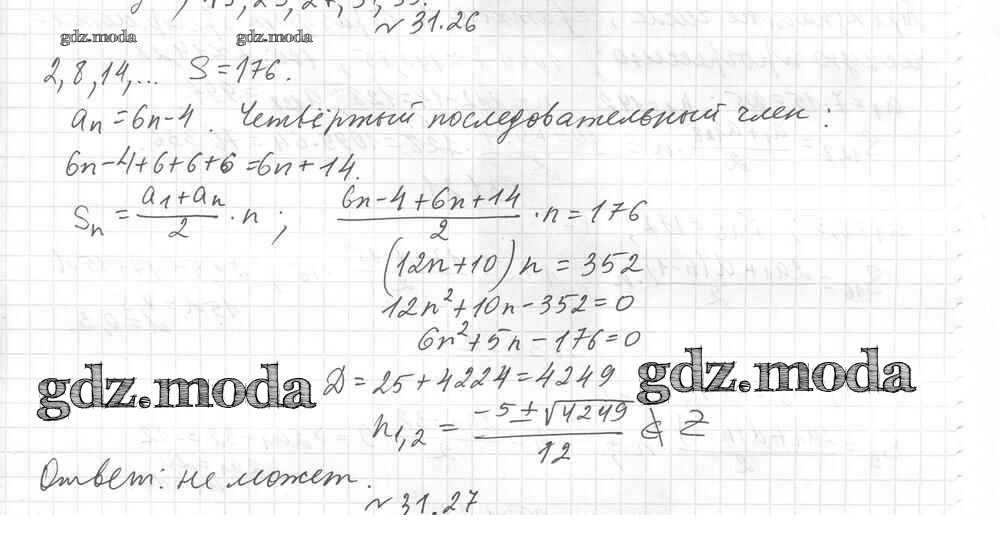 15, 23, 27, 31, 35.
№ 31.26
gdz.moda gdz.moda
2, 8, 14, ... S = 176.
aₙ = 6n-4. Четвёртый последовательный член:
6n-4+6+6+6 = 6n+14.
Sₙ = (a₁+aₙ)/2 · n ; (6n-4+6n+14)/2 · n = 176
(12n+10)n = 352
12n²+10n-352=0
6n²+5n-176=0
gdz.moda D = 25+4224=4249 gdz.moda
n₁,₂ = (-5±√4249)/12 ∉ Z
Ответ: не может.
№ 31.27